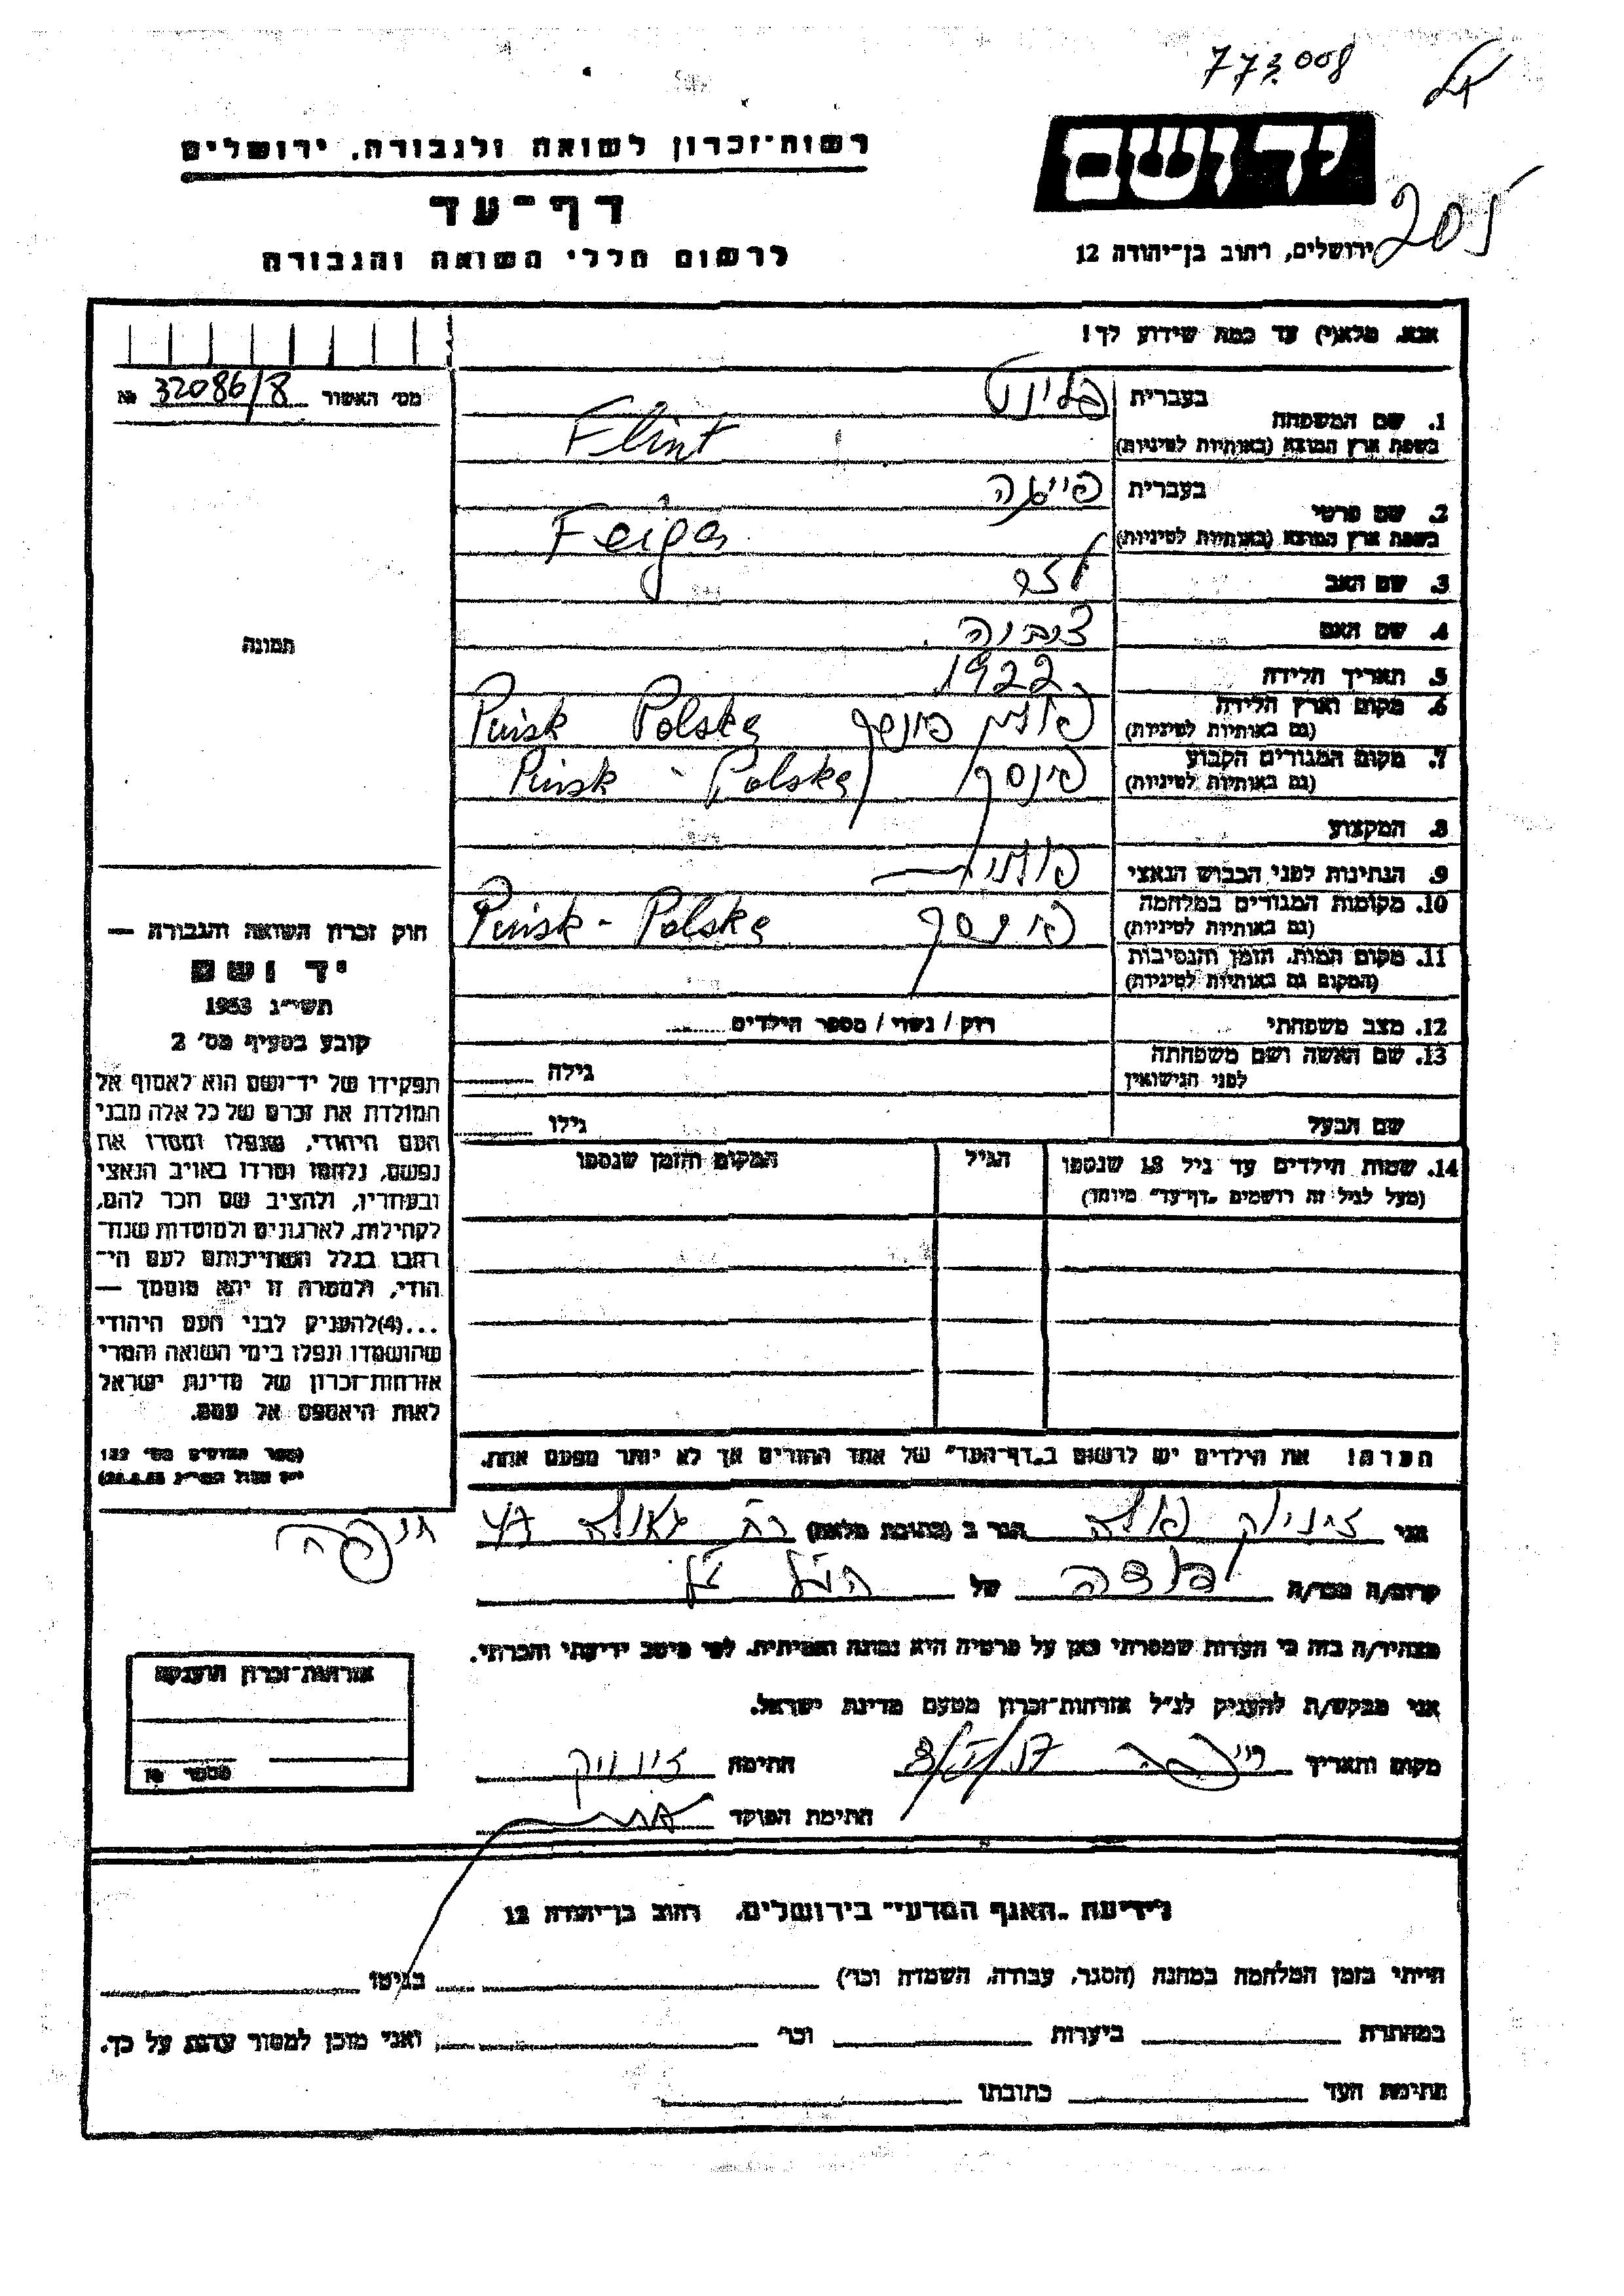 773008
רשות־זכרון לשואה ולגבורה, ירושלים
יד ושם
דף־עד
205
לרשום חללי השואה והגבורה
ירושלים, רחוב בן־יהודה 12
אנא, מלא(י) עד כמה שידוע לך!
מס׳ האשור 32086/8 №
בעברית פלינט
1. שם המשפחה
בשפת ארץ המוצא (באותיות לטיניות) Flint
בעברית פייגה
2. שם פרטי
בשפת ארץ המוצא (באותיות לטיניות) Feiga
3. שם האב
4. שם האם
5. תאריך הלידה 1922
6. מקום וארץ הלידה Pińsk Polska
(גם באותיות לטיניות)
7. מקום המגורים הקבוע פינסק Pińsk - Polska
(גם באותיות לטיניות)
8. המקצוע
9. הנתינות לפני הכבוש הנאצי
10. מקומות המגורים במלחמה פינסק Pińsk - Polska
(גם באותיות לטיניות)
11. מקום המות, הזמן והנסיבות
(המקום גם באותיות לטיניות)
12. מצב משפחתי רווק / נשוי / מספר הילדים
13. שם האשה ושם משפחתה
לפני הנישואין גילה
שם הבעל גילו
14. שמות הילדים עד גיל 18 שנספו הגיל המקום והזמן שנספו
(מעל לגיל זה רושמים „דף־עד״ מיוחד)
תמונה
חוק זכרון השואה והגבורה —
יד ושם
תשי״ג 1953
קובע בסעיף מס׳ 2
תפקידו של יד־ושם הוא לאסוף אל
המולדת את זכרם של כל אלה מבני
העם היהודי, שנפלו ומסרו את
נפשם, נלחמו ומרדו באויב הנאצי
ובעוזריו, ולהציב שם וזכר להם,
לקהילות, לארגונים ולמוסדות שנח־
רבו בגלל השתייכותם לעם הי־
הודי, ולמטרה זו יהא מוסמך —
...(4)להעניק לבני העם היהודי
שהושמדו ונפלו בימי השואה והמרי
אזרחות־זכרון של מדינת ישראל
לאות היאספם אל עמם.
(ספר החוקים מס׳ 132
הערה! את הילדים יש לרשום ב„דף־העד״ של אחד ההורים אך לא יותר מפעם אחת.
אני הגר ב (כתובת מלאה) רח גאולה
חיפה
קרוב/ה מכר/ה של הנ״ל
מצהיר/ה בזה כי העדות שמסרתי כאן על פרטיה היא נכונה ואמיתית, לפי מיטב ידיעתי והכרתי.
אני מבקש/ת להעניק לנ״ל אזרחות־זכרון מטעם מדינת ישראל.
אזרחות־זכרון הוענקה
מספר №
מקום ותאריך חיפה חתימה
חתימת הפוקד
לידיעת „האגף המדעי״ בירושלים, רחוב בן־יהודה 12
הייתי בזמן המלחמה במחנה (הסגר, עבודה, השמדה וכו׳) בגיטו
במחתרת ביערות וכו׳ ואני מוכן למסור עדות על כך.
חתימת העד כתובתו